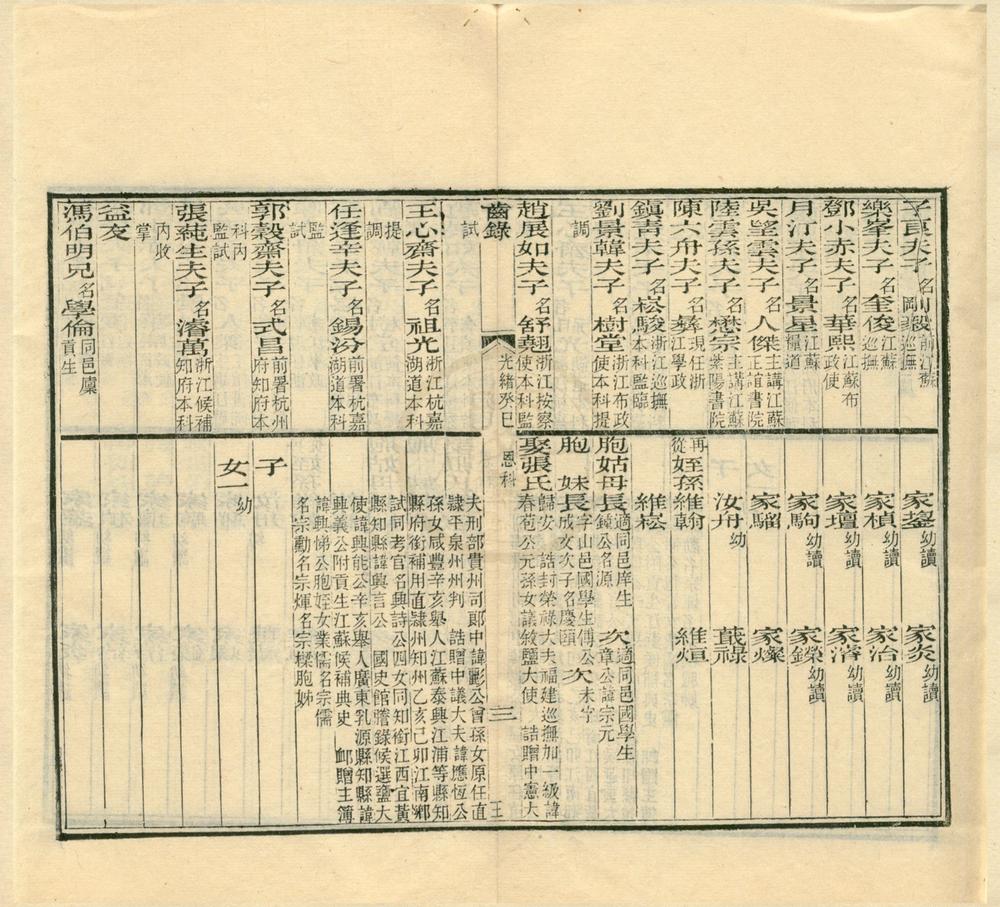 子良夫子名剛毅前江蘇巡撫
樂峯夫子名奎俊江蘇巡撫
鄧小赤夫子名華熙江蘇布政使
月汀夫子名景星江蘇糧道
吳望雲夫子名人傑主講江蘇正誼書院
陸雲孫夫子名懋宗主講江蘇紫陽書院
陳六舟夫子名彝現任浙江學政
鎮青夫子名崧駿浙江巡撫本科監臨
劉景韓夫子名樹堂浙江布政使本科提
調
趙展如夫子名舒翹浙江按察使本科監
家鋆幼讀 家炎幼讀
家楨幼讀 家治幼讀
家壇幼讀 家濬幼讀
家駒幼讀 家鑅幼讀
家騮 家燦
汝舟幼 蕺祿
再從姪孫維翰 維烜
維崧
胞姑母長適同邑庠生鍊公名源 次適同邑國學生文章公諱宗元
胞妹長字山邑國學生傅公成文次子名慶頤 次未字
娶張氏歸安 誥封榮祿大夫福建巡撫加一級諱春苞公元孫女議敘鹽大使 誥贈中憲大
齒錄 光緒癸巳 恩科 三 王
試
王心齋夫子名祖光浙江杭嘉湖道本科
提調
任逢辛夫子名錫汾前署杭嘉湖道本科
監試
郭穀齋夫子名式昌前署杭州府知府本
科內監試
張蒓生夫子名濬萬浙江候補知府本科
內收掌
益友
馮伯明兄名學倫同邑廩貢生
夫刑部貴州司郎中諱彲公曾孫女原任直
隸平泉州州判 誥贈中議大夫諱應恆公
孫女咸豐辛亥舉人江蘇泰興江浦等縣知
縣府銜補用直隸州知州乙亥己卯江南鄉
試同考官名興詩公四女同知銜江西宜黃
縣知縣諱興言公 國史館謄錄候選鹽大
使諱興能公辛亥舉人廣東乳源縣知縣諱
興義公附貢生江蘇候補典史 卹贈主簿
諱興悌公胞姪女業儒名宗儒
名宗勳名宗煇名宗櫟胞姊
子
女一幼